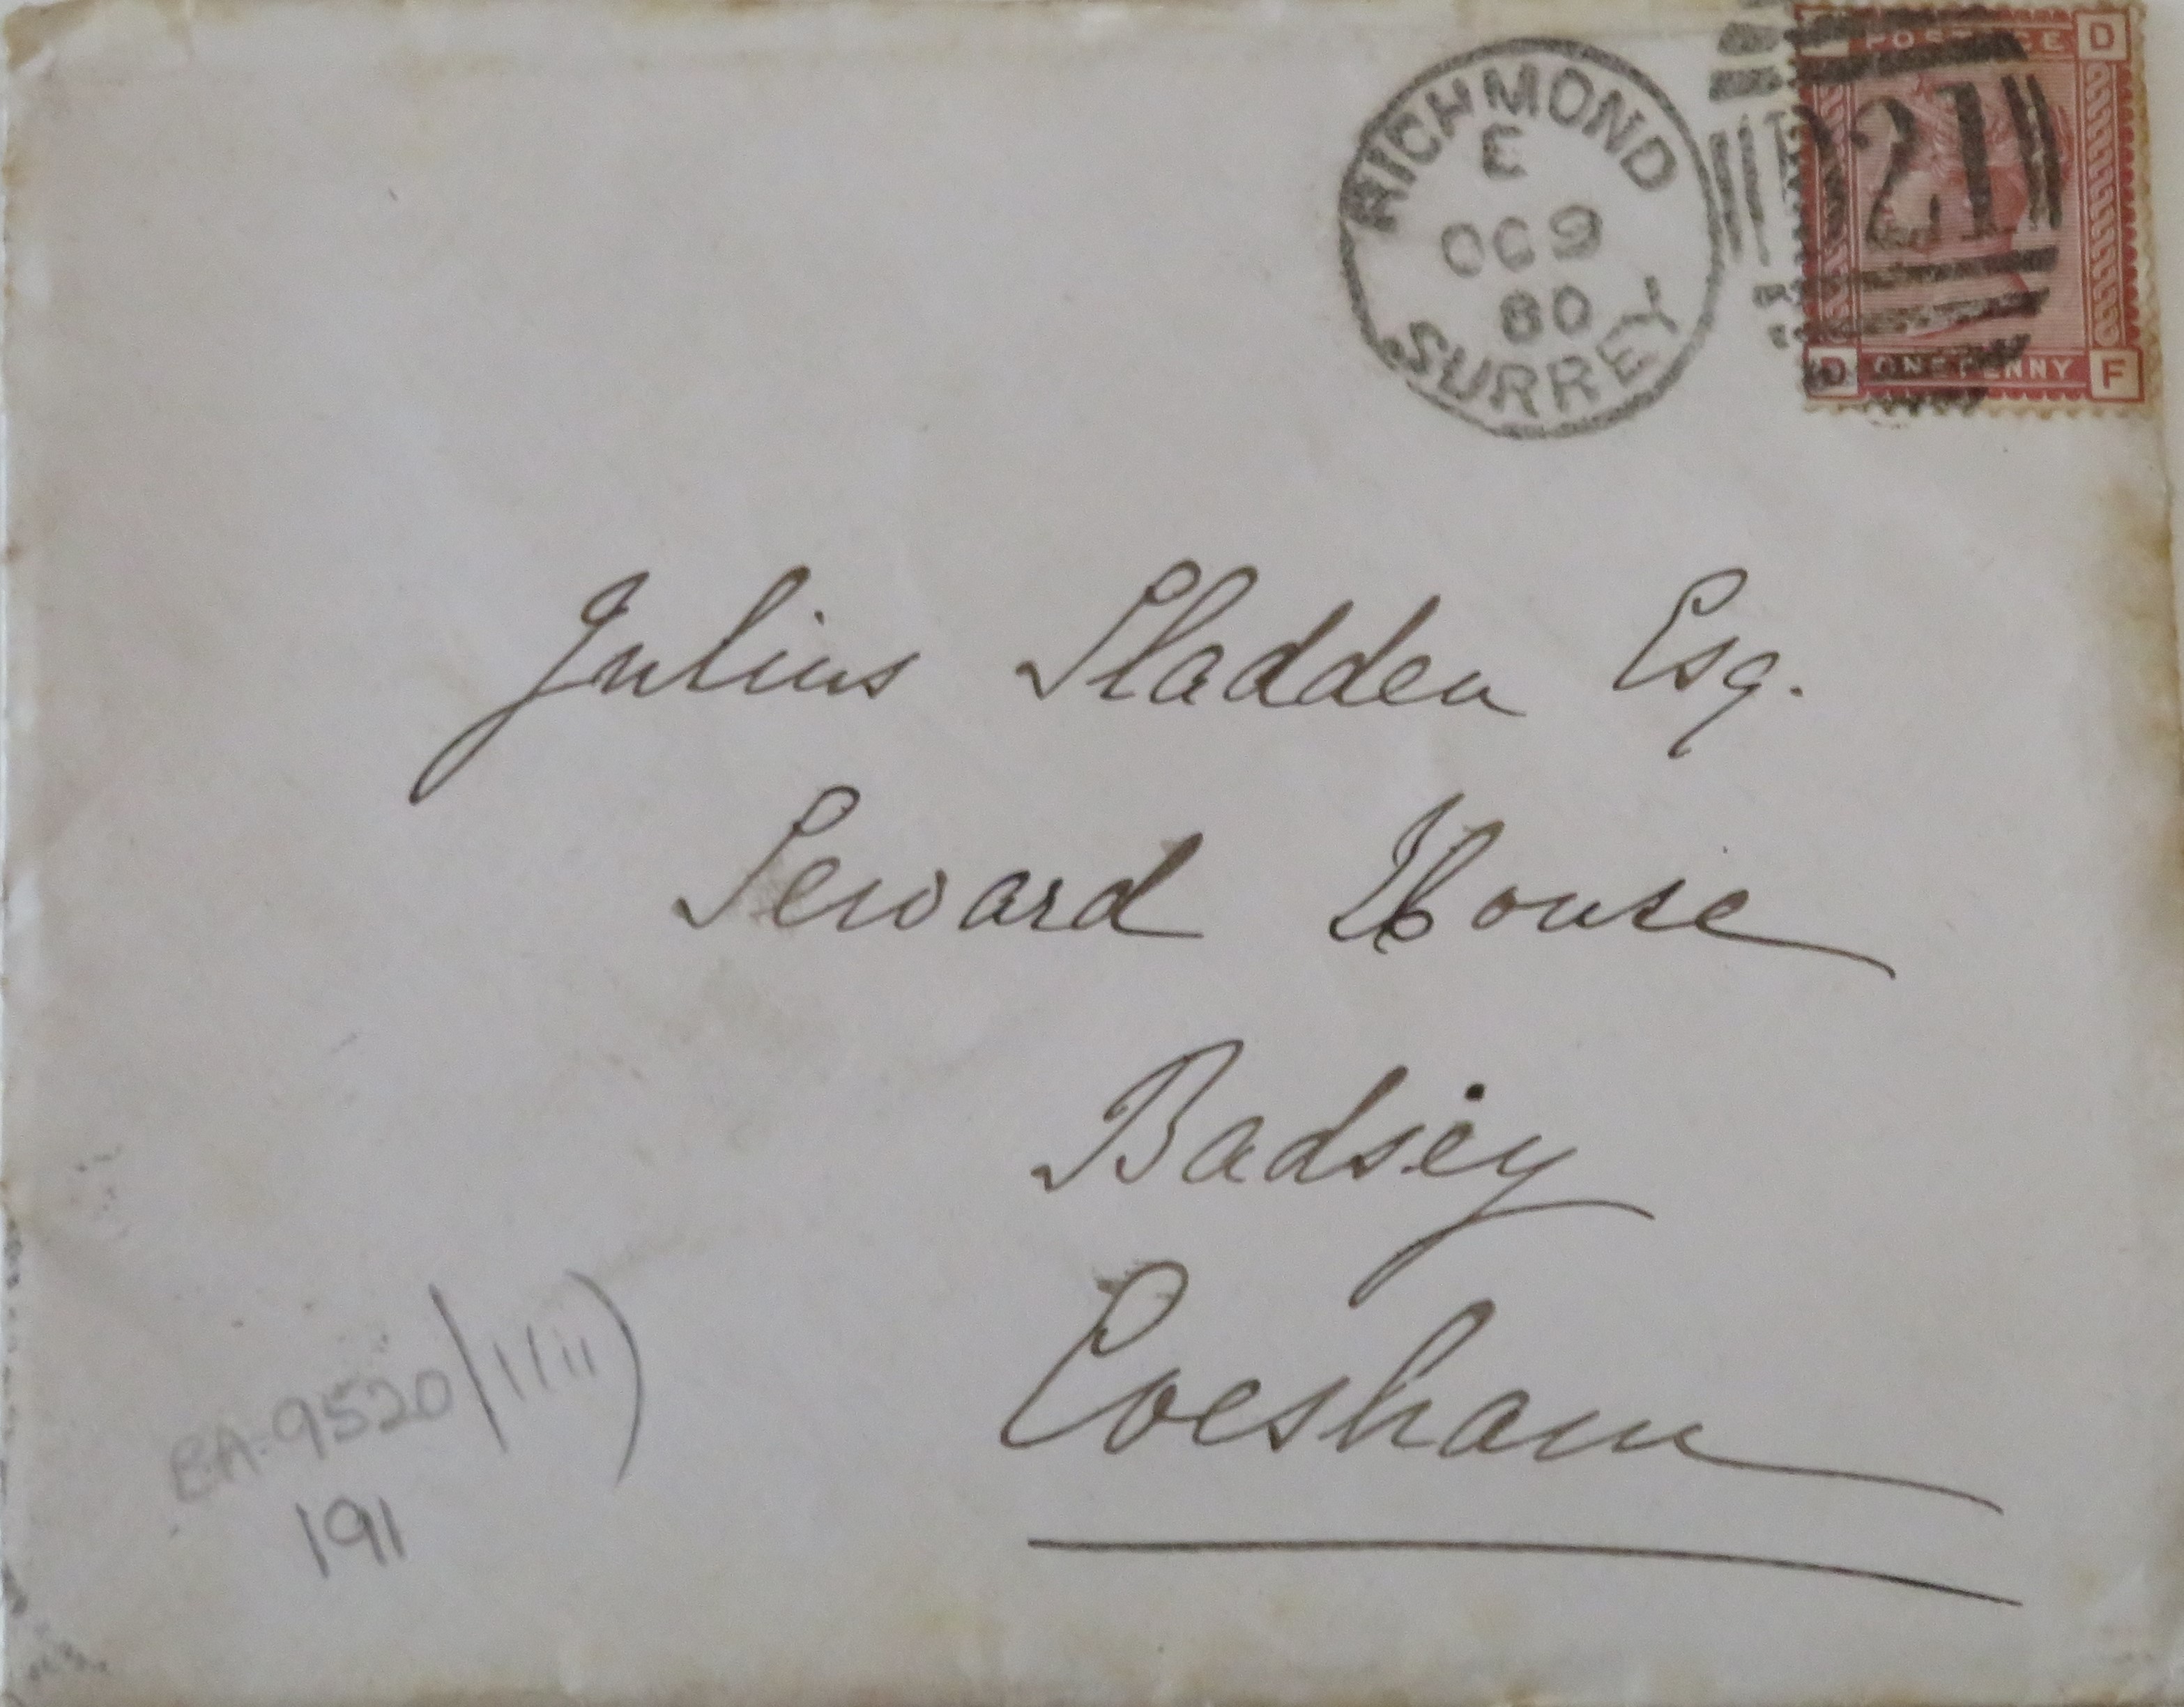 RICHMOND
E
OC 9
80
SURREY
POSTAGE
D
21
D ONE PENNY F
Julius Sladden Esq.
Seward House
Badsey
Evesham
BA 9520/1/11)
191